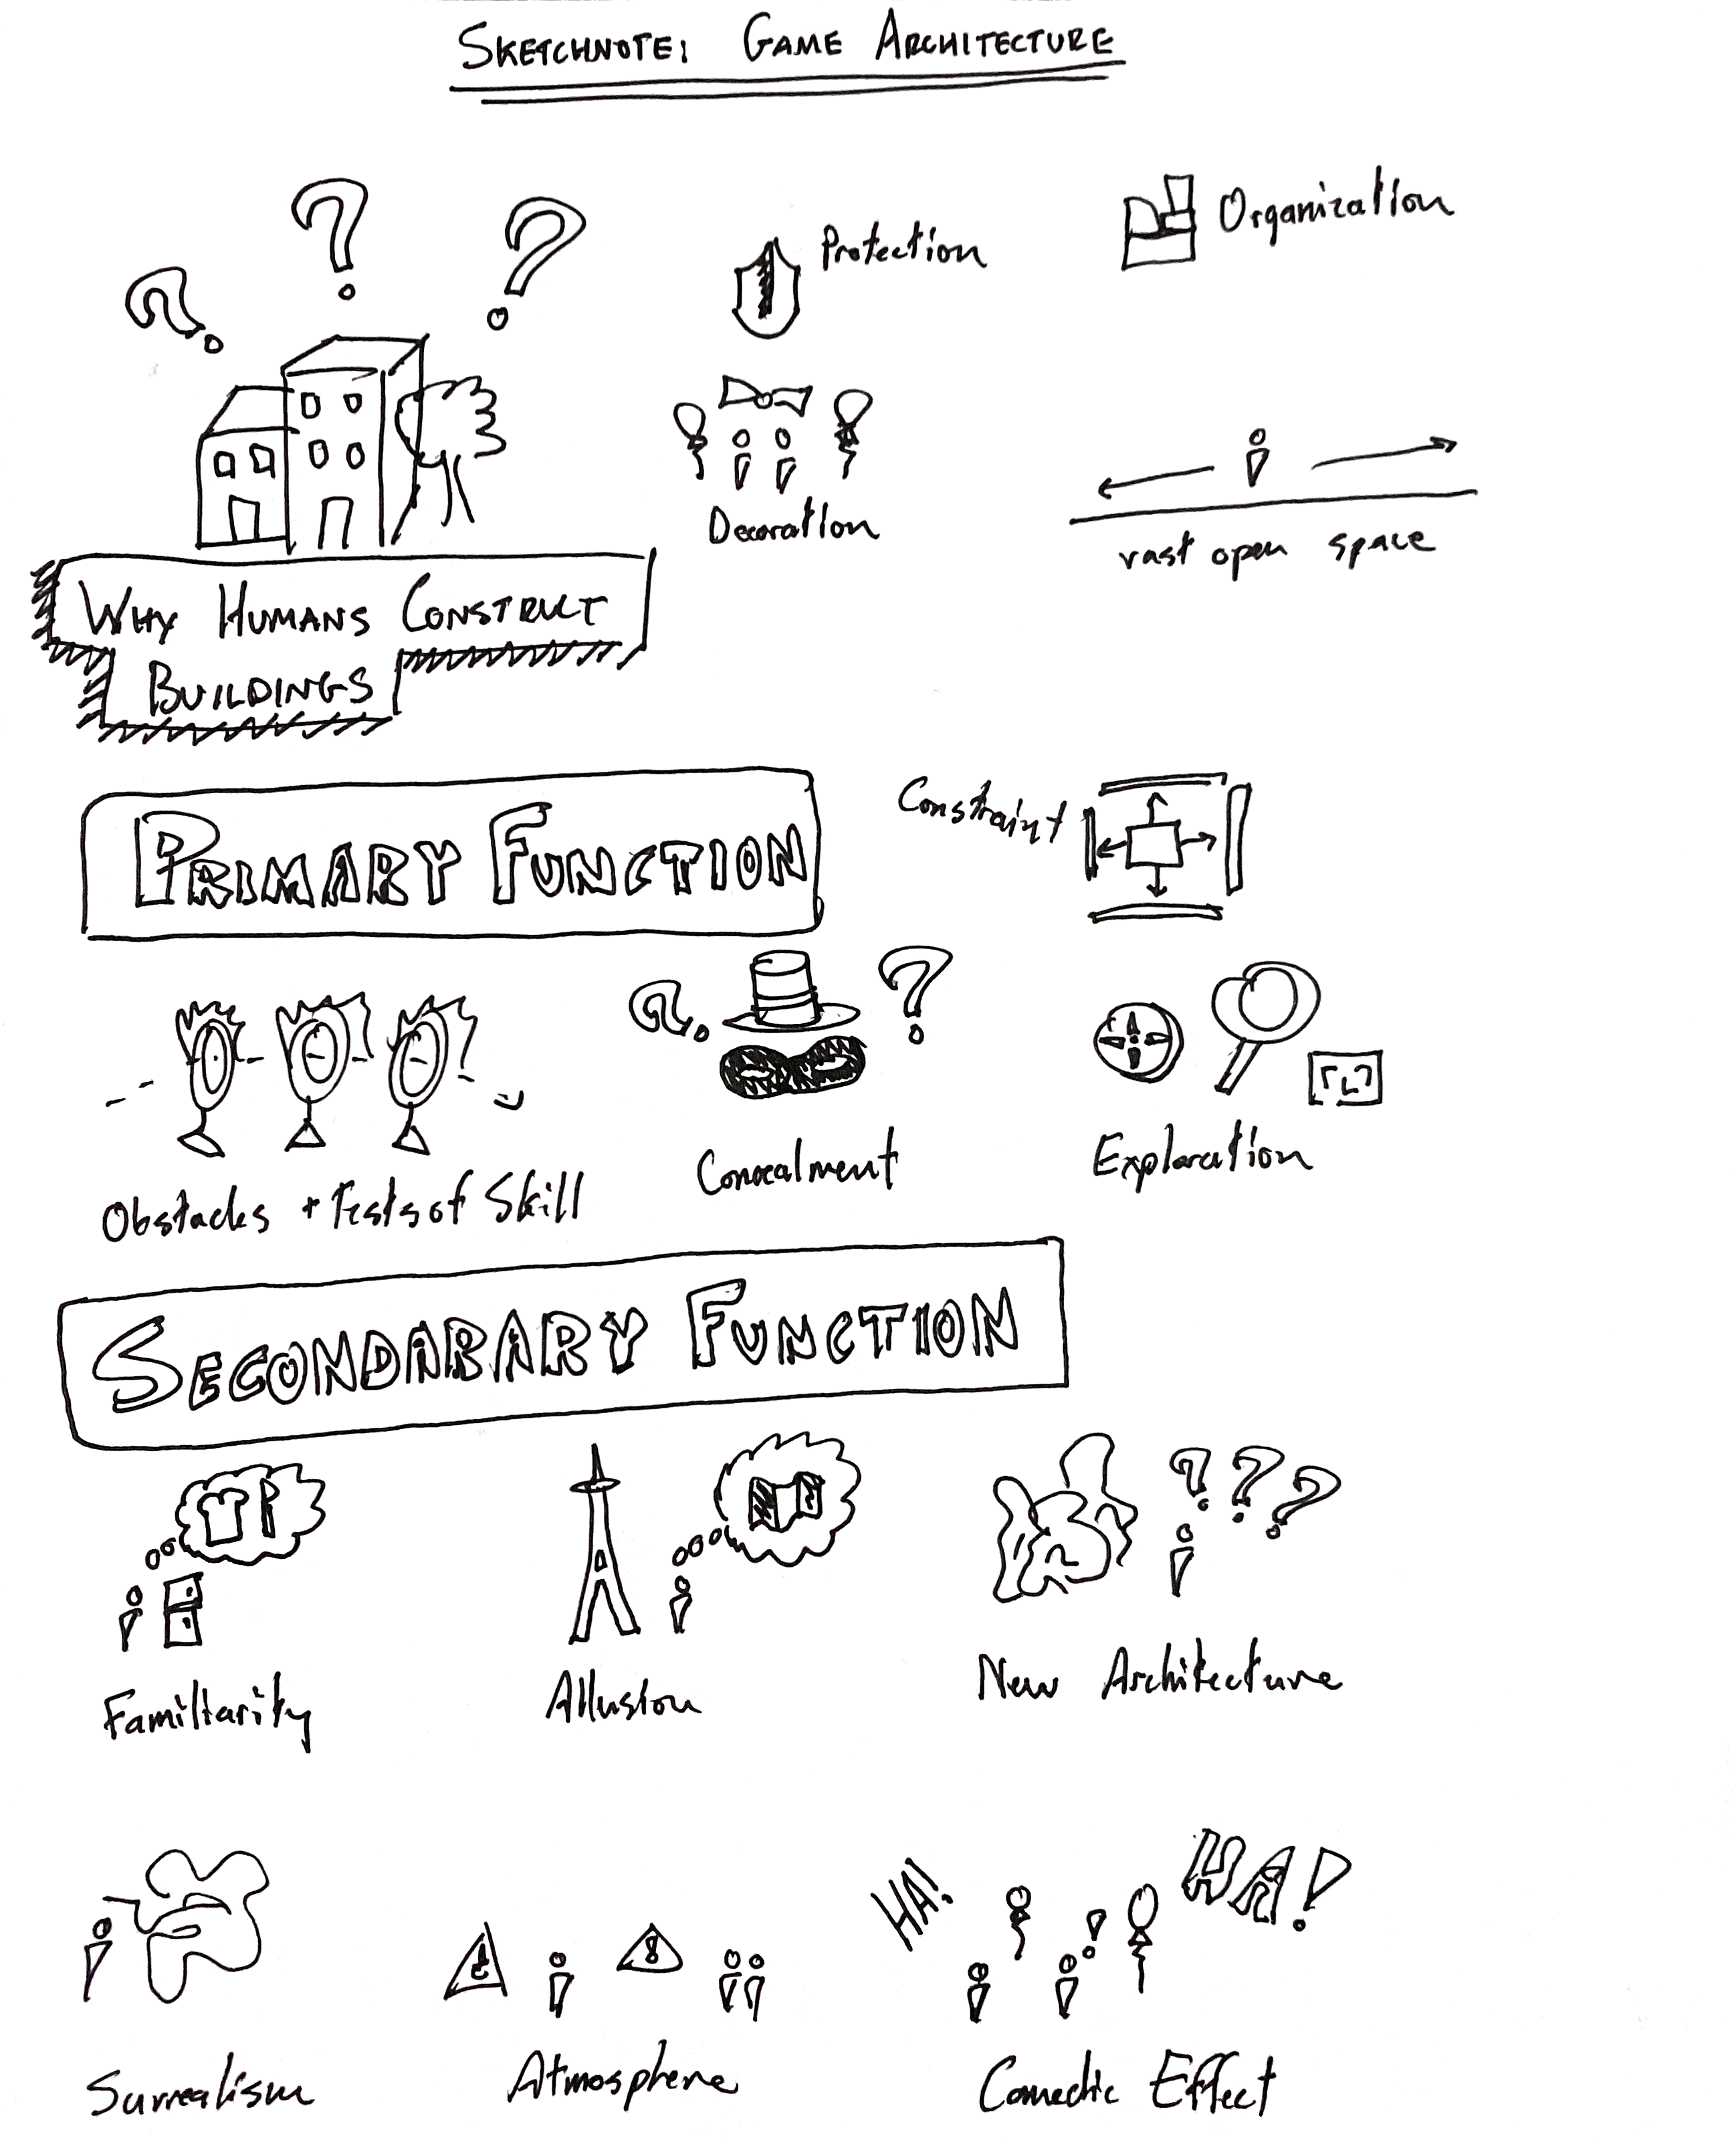 SKETCHNOTE: GAME ARCHITECTURE
? ? ?
Protection
Organization
Decoration
vast open space
WHY HUMANS CONSTRUCT
BUILDINGS
PRIMARY FUNCTION
Constraint
? ?
Obstacles + Tests of Skill
Concealment
Exploration
SECONDARARY FUNCTION
? ? ?
Familiarity
Allusion
New Architecture
HA!
HA!
!
Surrealism
Atmosphere
Comedic Effect